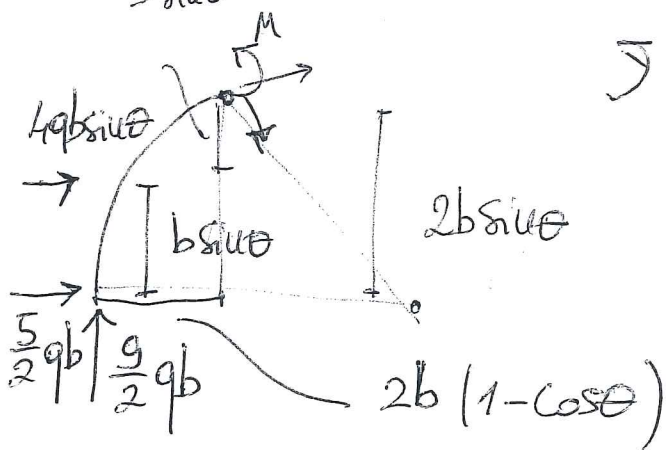 M
4qbsinθ
bsinθ
2bsinθ
5/2 qb
9/2 qb
2b (1-cosθ)